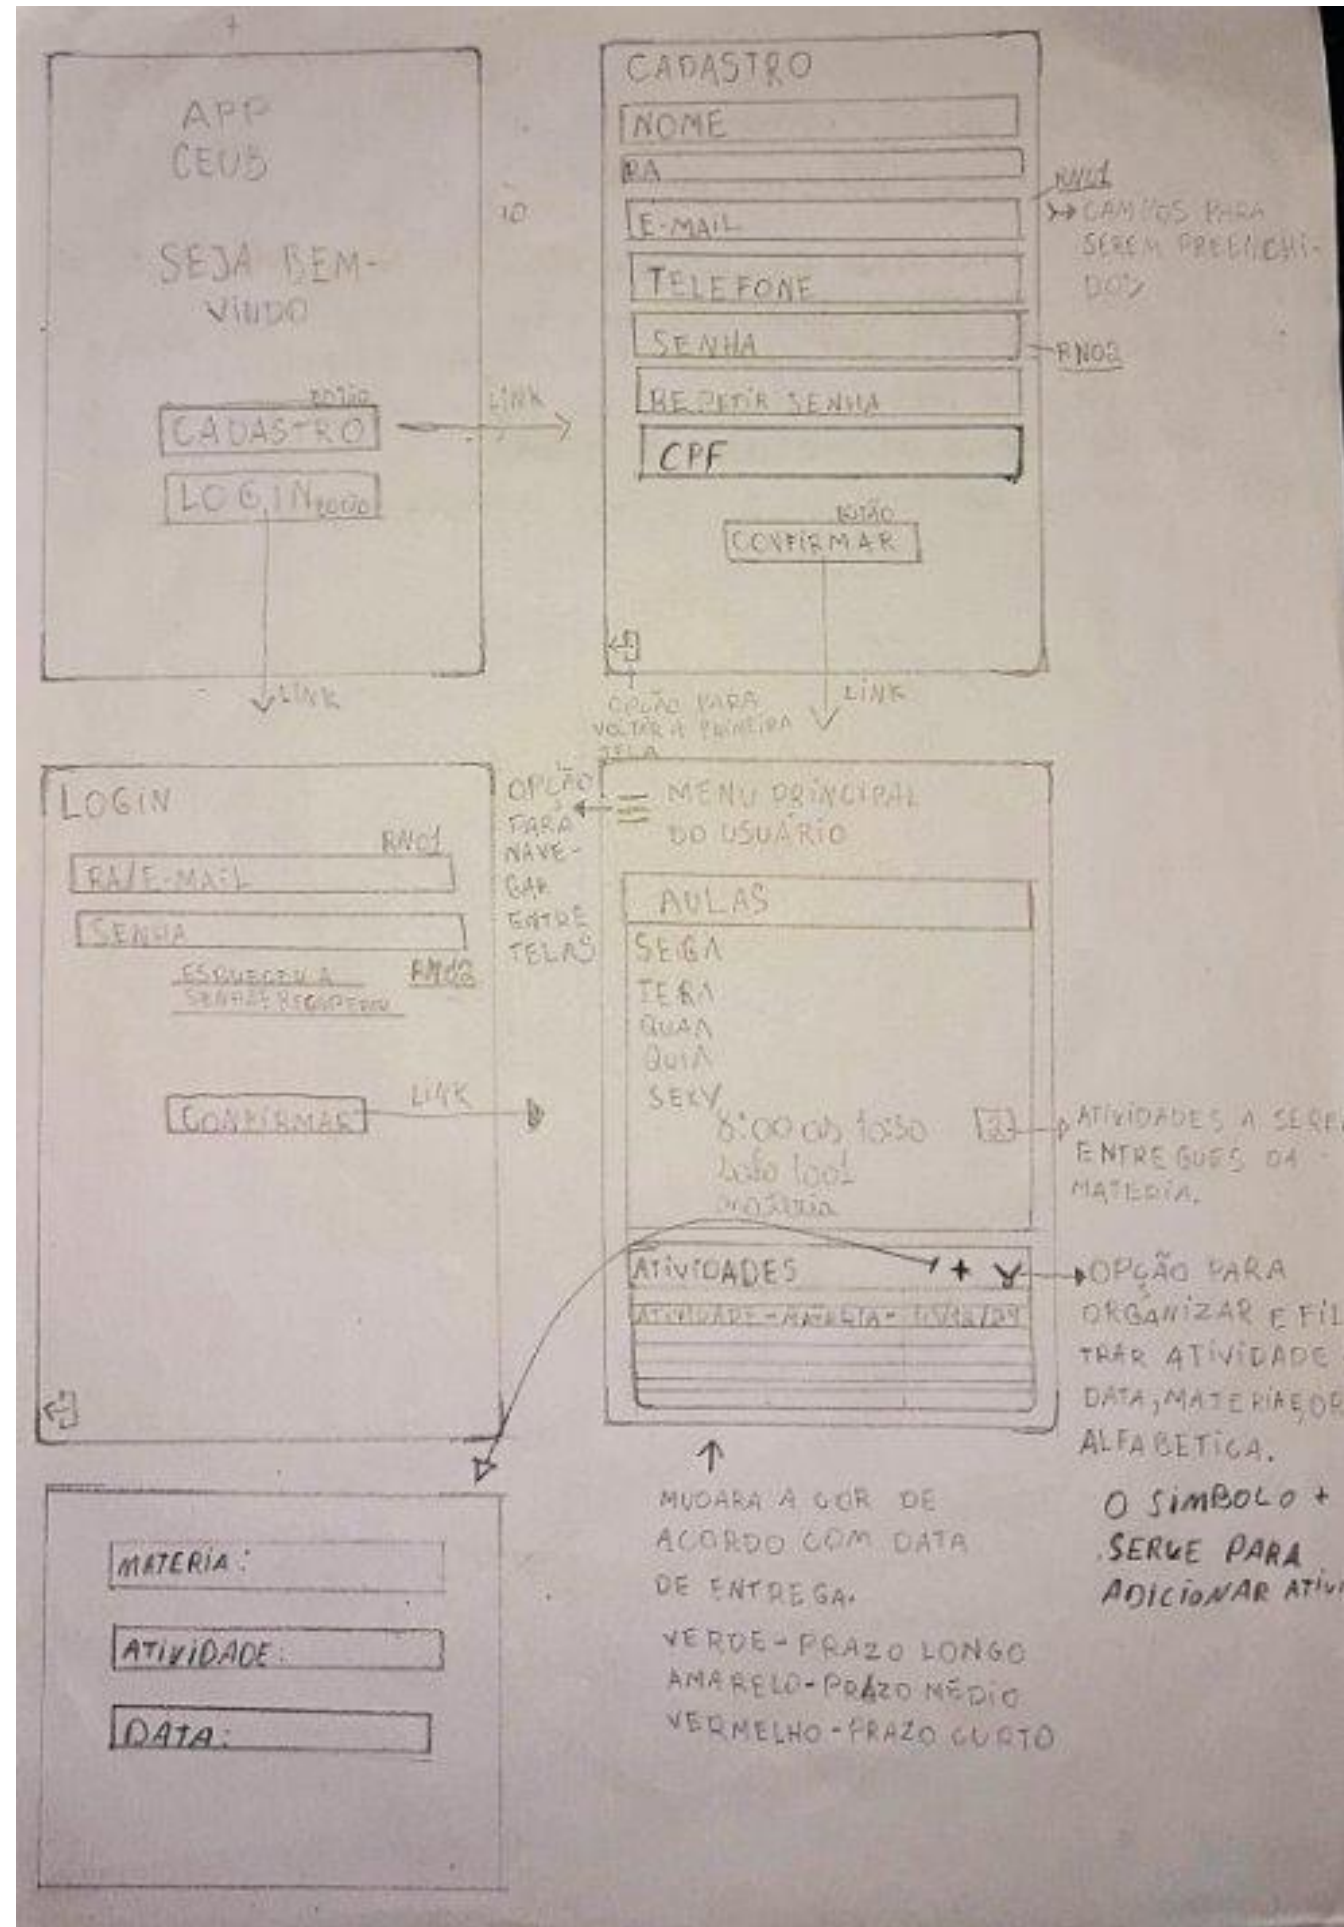 APP
CEUB
SEJA BEM-
VINDO
BOTÃO
CADASTRO
LOGIN BOTÃO
LINK
LINK
CADASTRO
NOME
RA
E-MAIL
TELEFONE
SENHA
REPETIR SENHA
CPF
BOTÃO
CONFIRMAR
RN01
CAMPOS PARA
SEREM PREENCHI-
DOS
RN02
OPÇÃO PARA
VOLTAR A PRIMEIRA
TELA
LINK
LOGIN
RN01
RA/E-MAIL
SENHA
ESQUECEU A
RN02
CONFIRMAR
LINK
OPÇÃO
PARA
NAVE-
GAR
ENTRE
TELAS
MENU PRINCIPAL
DO USUÁRIO
AULAS
SEG
TER
QUA
QUI
SEX
8:00 as 10:30
materia
ATIVIDADES A SEREM
ENTREGUES DA
MATERIA.
ATIVIDADES +
ATIVIDADE - MATERIA -
OPÇÃO PARA
ORGANIZAR E FIL
TRAR ATIVIDADE
DATA, MATERIA E OR
ALFABETICA.
O SIMBOLO +
SERVE PARA
ADICIONAR ATIVI
MUDARA A COR DE
ACORDO COM DATA
DE ENTREGA.
VERDE - PRAZO LONGO
AMARELO - PRAZO MÉDIO
VERMELHO - PRAZO CURTO
MATERIA:
ATIVIDADE:
DATA: